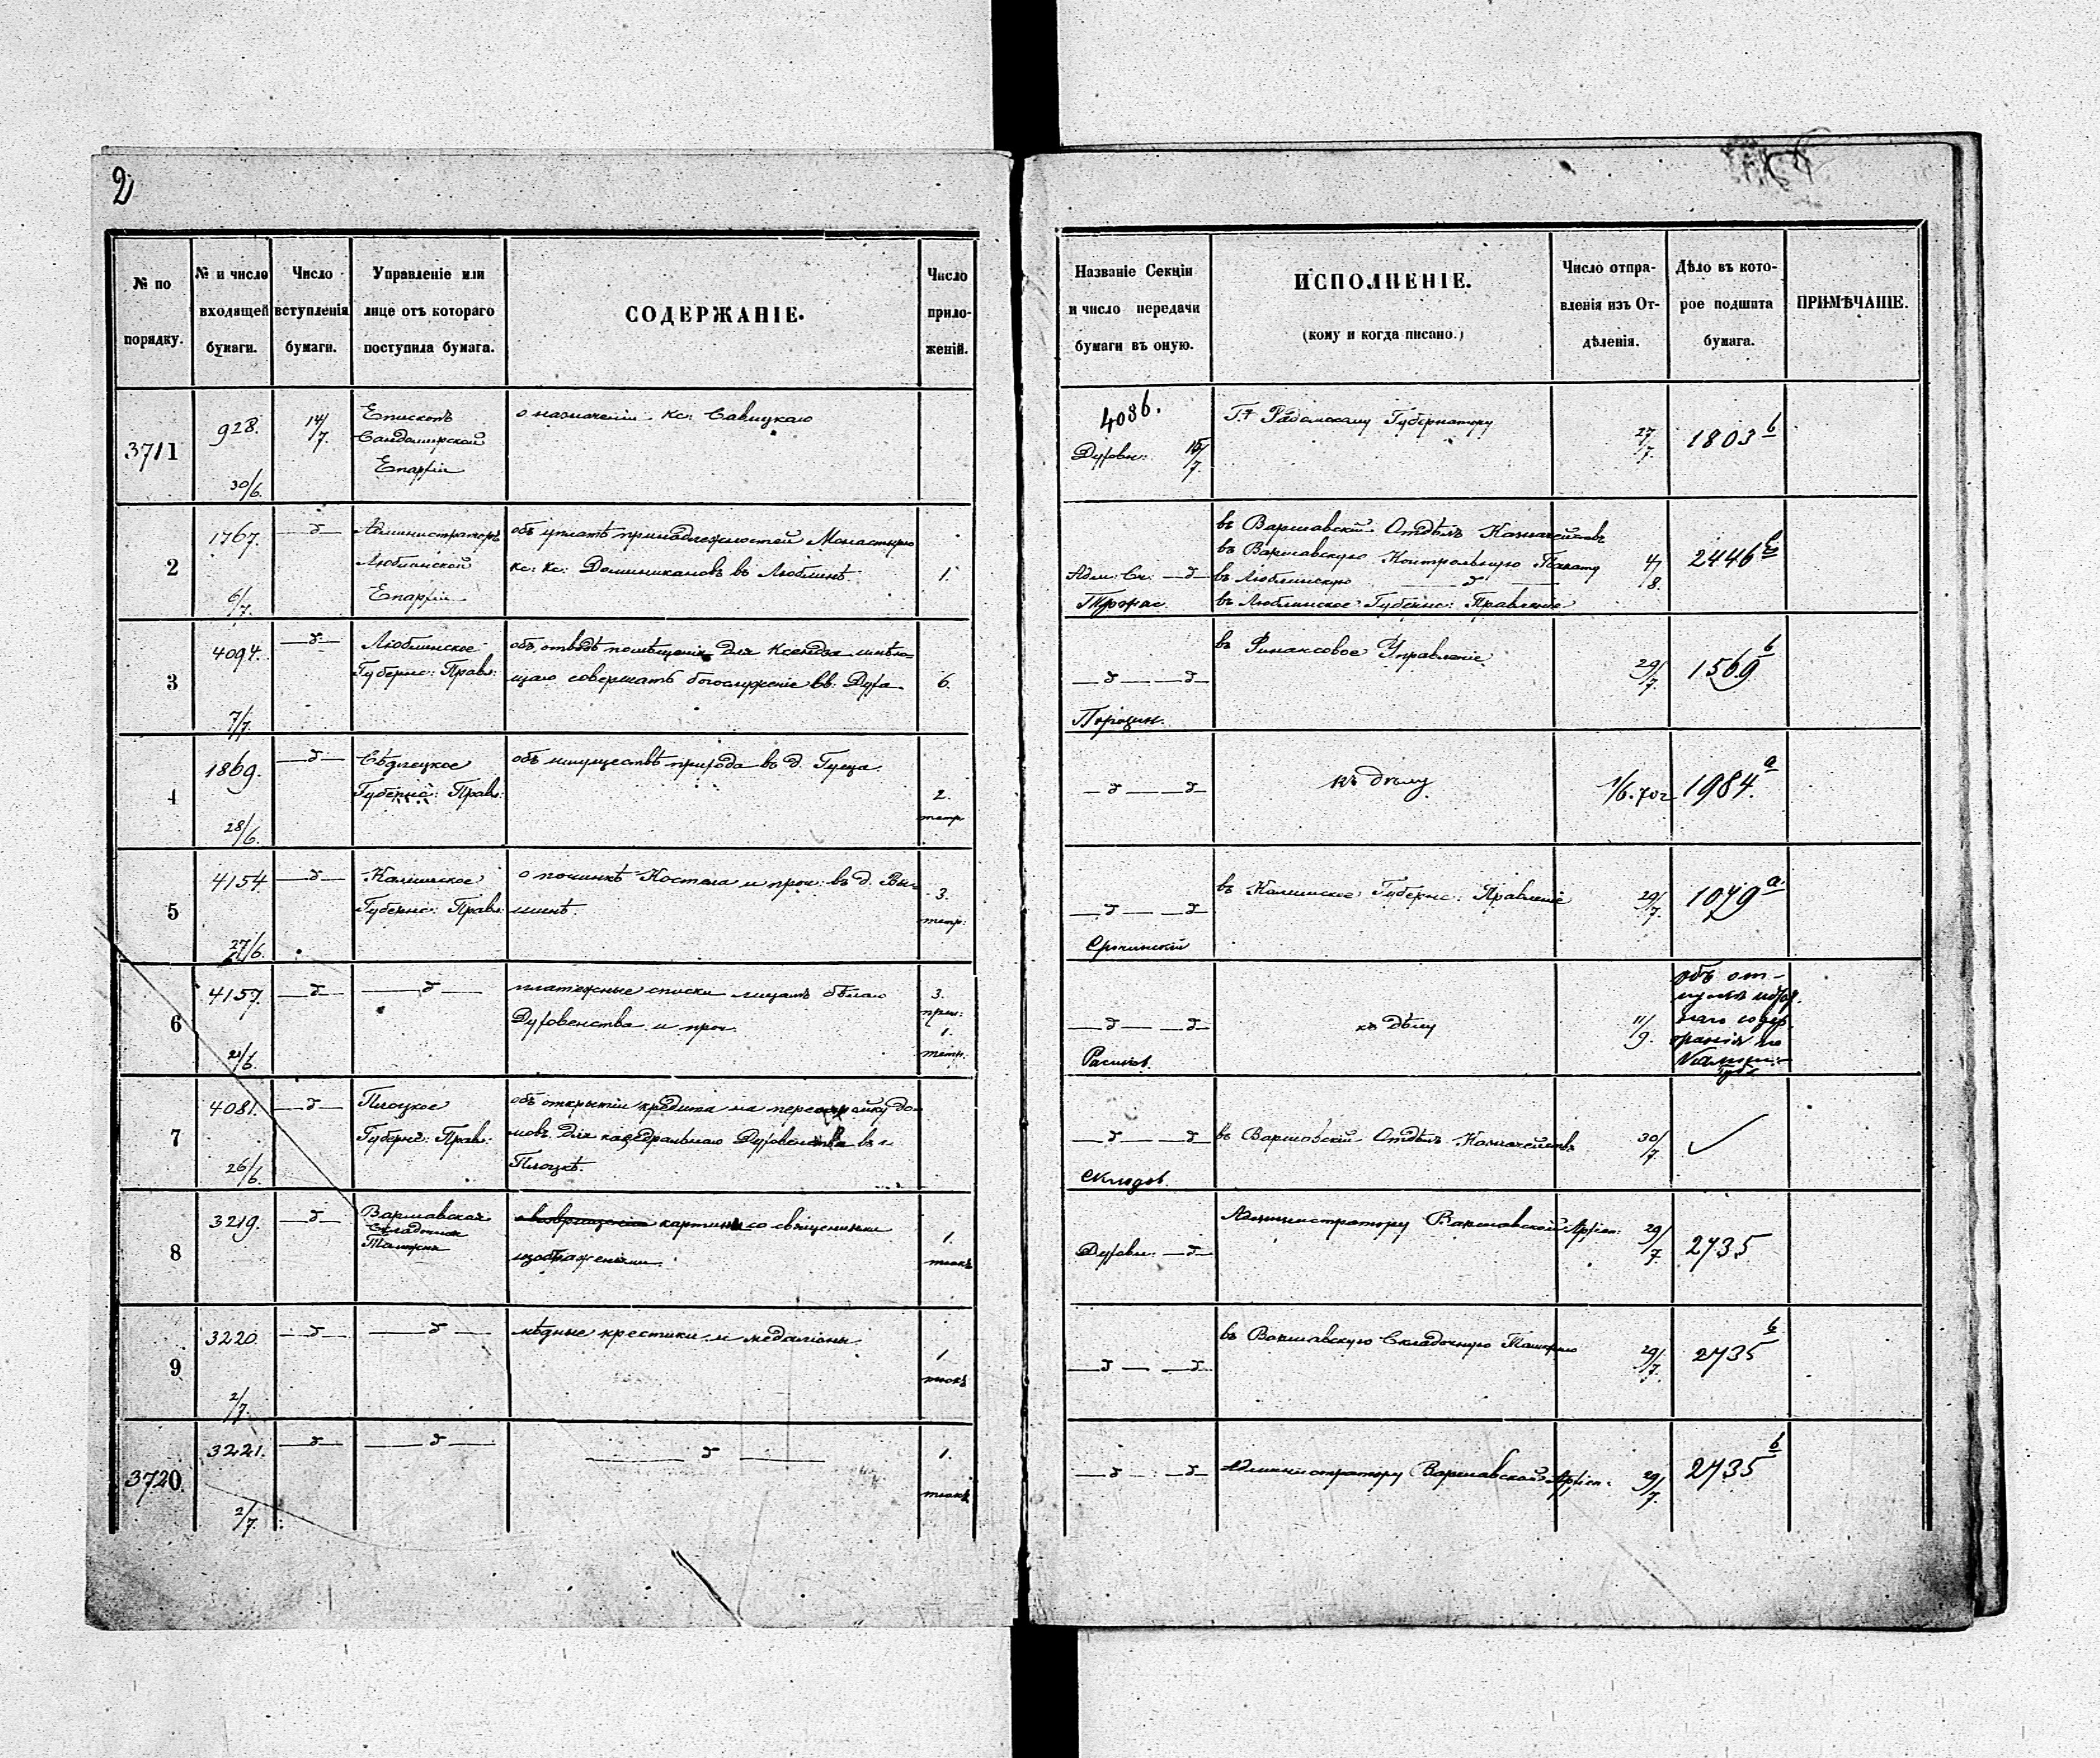 2
№ по порядку.
№ и число входящей бумаги.
Число вступленія бумаги.
Управленіе или лице отъ котораго поступила бумага.
СОДЕРЖАНІЕ.
Число приложеній.
Названіе Секціи и число передачи бумаги въ оную.
ИСПОЛНЕНІЕ.
(кому и когда писано.)
Число отправленія изъ Отдѣленія.
Дѣло въ которое подшита бумага.
ПРИМѢЧАНІЕ.
3711
928.
30/6.
14/7.
Епископъ
Сандомирской
Епархіи
о назначеніи кс: Савицкаго
4036.
Духовн: 15/7.
Г. Радомскому Губернатору
27/7.
1803 b
2
1767.
6/7.
—д—
Администраторъ
Люблинской
Епархіи
объ уплатѣ принадлежностей Монастырю
кс: кс: Доминикановъ въ Люблинѣ
1.
Адм: Сч: —д—
въ Варшавскій Отдѣлъ Казначействъ
въ Варшавскую Контрольную Палату
въ Люблинскую —д—
въ Люблинское Губернс: Правленіе
4/8.
2446
3
4094.
7/7.
—д—
Люблинское
Губернс: Правл:
объ отводѣ помѣщенія для Ксендза имѣю-
щаго совершать богослуженіе въ: Духа
6.
—д— —д
въ Финансовое Управленіе
29/7.
1569 b
4
1869.
28/6.
—д—
Сѣдлецкое
Губернс: Правл:
объ имуществѣ прихода въ д. Гуща
2.
тетр
—д— —д
къ дѣлу
1/6. 70 г
1984. a
5
4154
27/6.
—д—
Калишское
Губернс: Правл:
о починкѣ Костела и проч: въ д. Вы-
шинѣ.
3.
тетр:
—д— —д
въ Калишское Губернс: Правленіе
29/7.
1079 a.
6
4157.
21/6.
—д—
—д—
платежные списки лицамъ бѣлаго
Духовенства и проч.
3.
прил:
1.
—д— —д
къ дѣлу
11/9.
объ от-
7
4081.
26/6.
—д—
Плоцкое
Губернс: Прав:
объ открытіи кредита на перестройку до-
мовъ для каѳедральнаго Духовенства въ г.
Плоцкѣ.
—д— —д
Склодов.
въ Варшавскій Отдѣлъ Казначействъ
30/7.
8
3219.
—д—
Варшавская
Складочная
Таможня
о возвращеніи картины со священными
изображеніями.
1.
тюкъ
Духовн: —д—
Администратору Варшавской Архіеп:
29/7
2735
9
3220.
2/7.
—д—
—д—
мѣдные крестики и медаліоны
1
тюкъ
—д— —д
въ Варшавскую Складочную Таможню
29/7.
2735 b
3720.
3221.
2/7.
—д—
—д—
—д—
1.
тюкъ
—д— —д
Администратору Варшавской Архіеп:
29/7.
2735 b